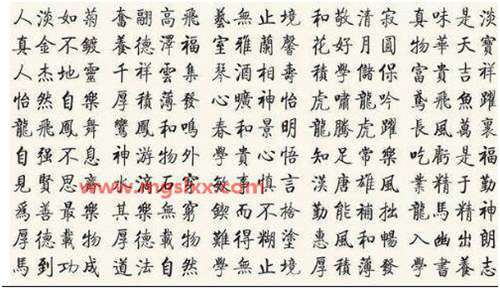 人淡如菊 奮翮高飛 藝無止境 和敬清寂 真味是淡
真金不鍍 養德澤福 室雅蘭馨 花好月圓 物華天寶
人杰地靈 千祥雲集 琴酒相壽 學儲保 富貴吉祥
怡然自樂 厚積薄發 心曠神怡 虎嘯龍吟 鳶飛魚躍
龍飛鳳舞 鸞鳳和鳴 春和景明 龍騰虎躍 長風萬裏
自强不息 神游物外 學貴心悟 知足常樂 吃虧是福
見賢思齊 水滴石穿 事慎言 漢唐雄風 業精于勤
www.mgslxx.com
爲善最樂 其樂無窮 鍥而不捨 勤能補拙 龍馬精神
厚德載物 厚德載物 難得糊塗 惠風和暢 入幽出朗
馬到功成 道法自然 學無止境 厚積薄發 學書養志